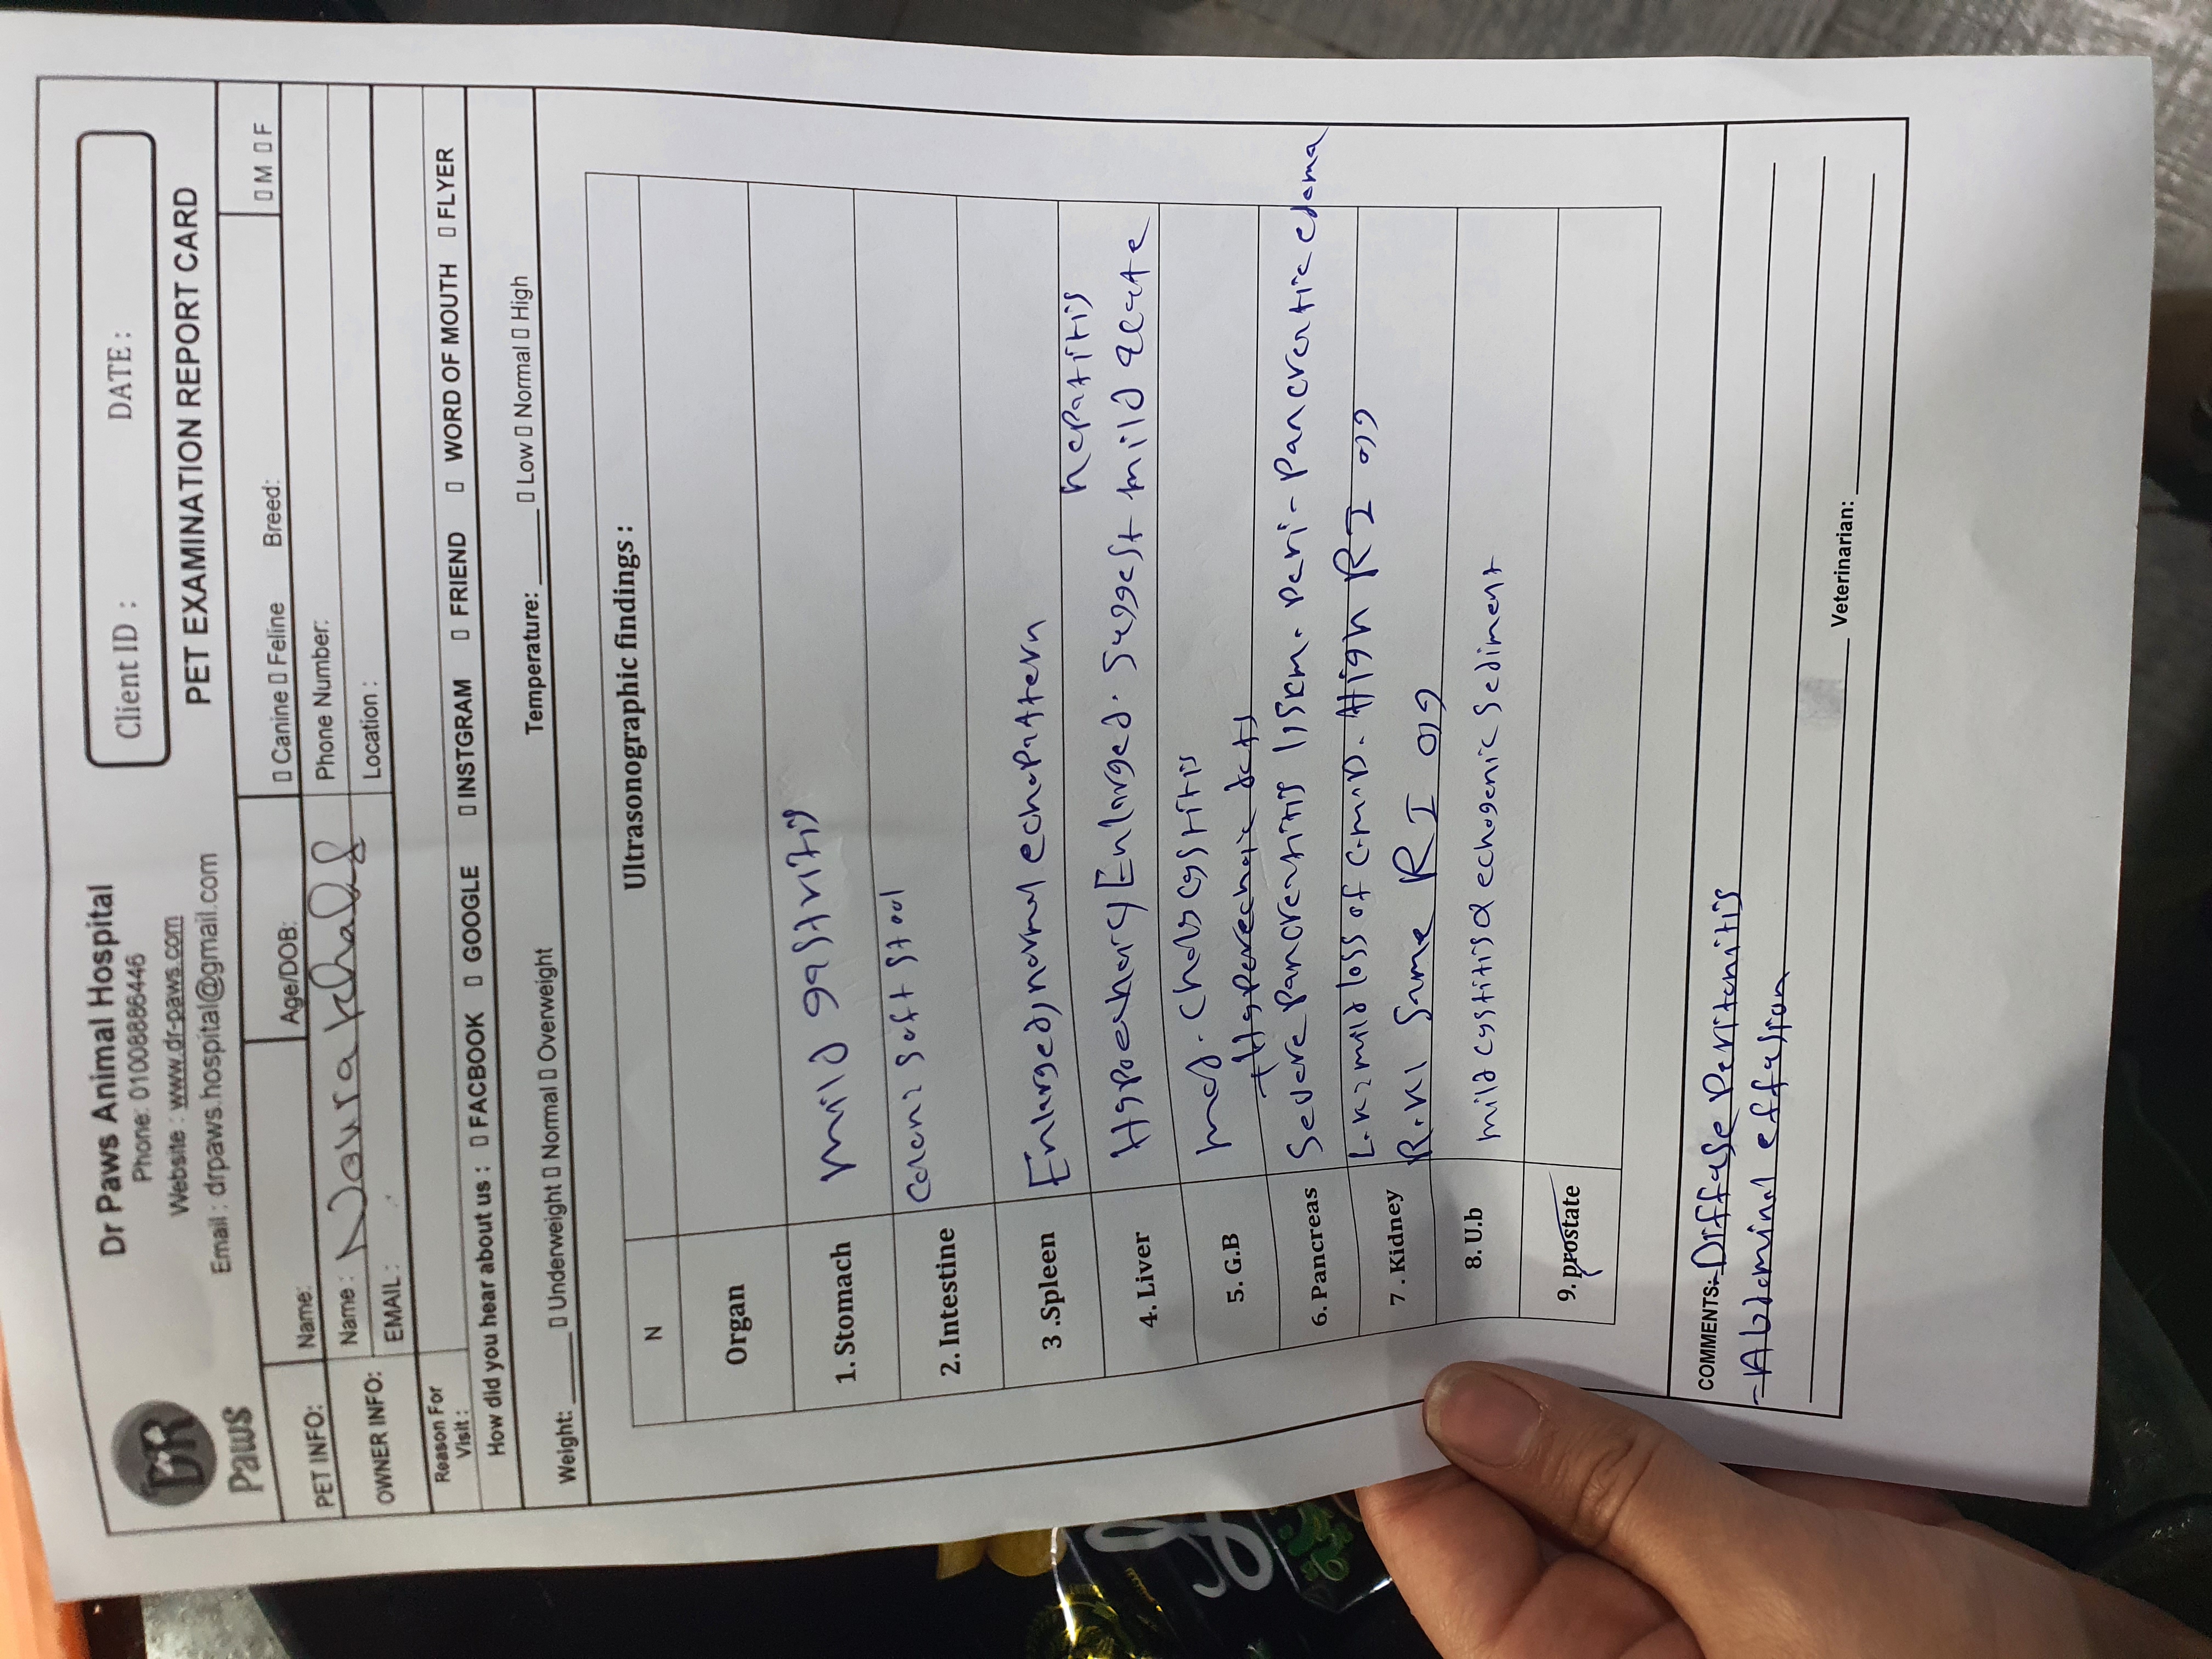 DR
Paws
Dr Paws Animal Hospital
Phone: 01008886446
Website : www.dr-paws.com
Email : drpaws.hospital@gmail.com
Client ID : DATE :
PET EXAMINATION REPORT CARD
PET INFO: Name: Age/DOB: Canine Feline Breed: M F
OWNER INFO: Name : Noura khalaf Phone Number:
EMAIL : Location :
Reason For
Visit :
How did you hear about us : FACBOOK GOOGLE INSTGRAM FRIEND WORD OF MOUTH FLYER
Weight: Underweight Normal Overweight Temperature: Low Normal High
N Ultrasonographic findings :
Organ
1. Stomach mild gastritis
2. Intestine soft stool
3 .Spleen Enlarged, normal echopattern
hepatitis
4. Liver Enlarged. suggest mild acute
5. G.B mod.
6. Pancreas Severe Pancreatitis Peri-Pancreatic edema
7 . Kidney L.K: mild loss of C.M.D. High R I
R.K: Same R I
8. U.b mild cystitis echogenic sediment
9. prostate
COMMENTS:- Diffuse Peritonitis
- Abdominal effusion
Veterinarian: